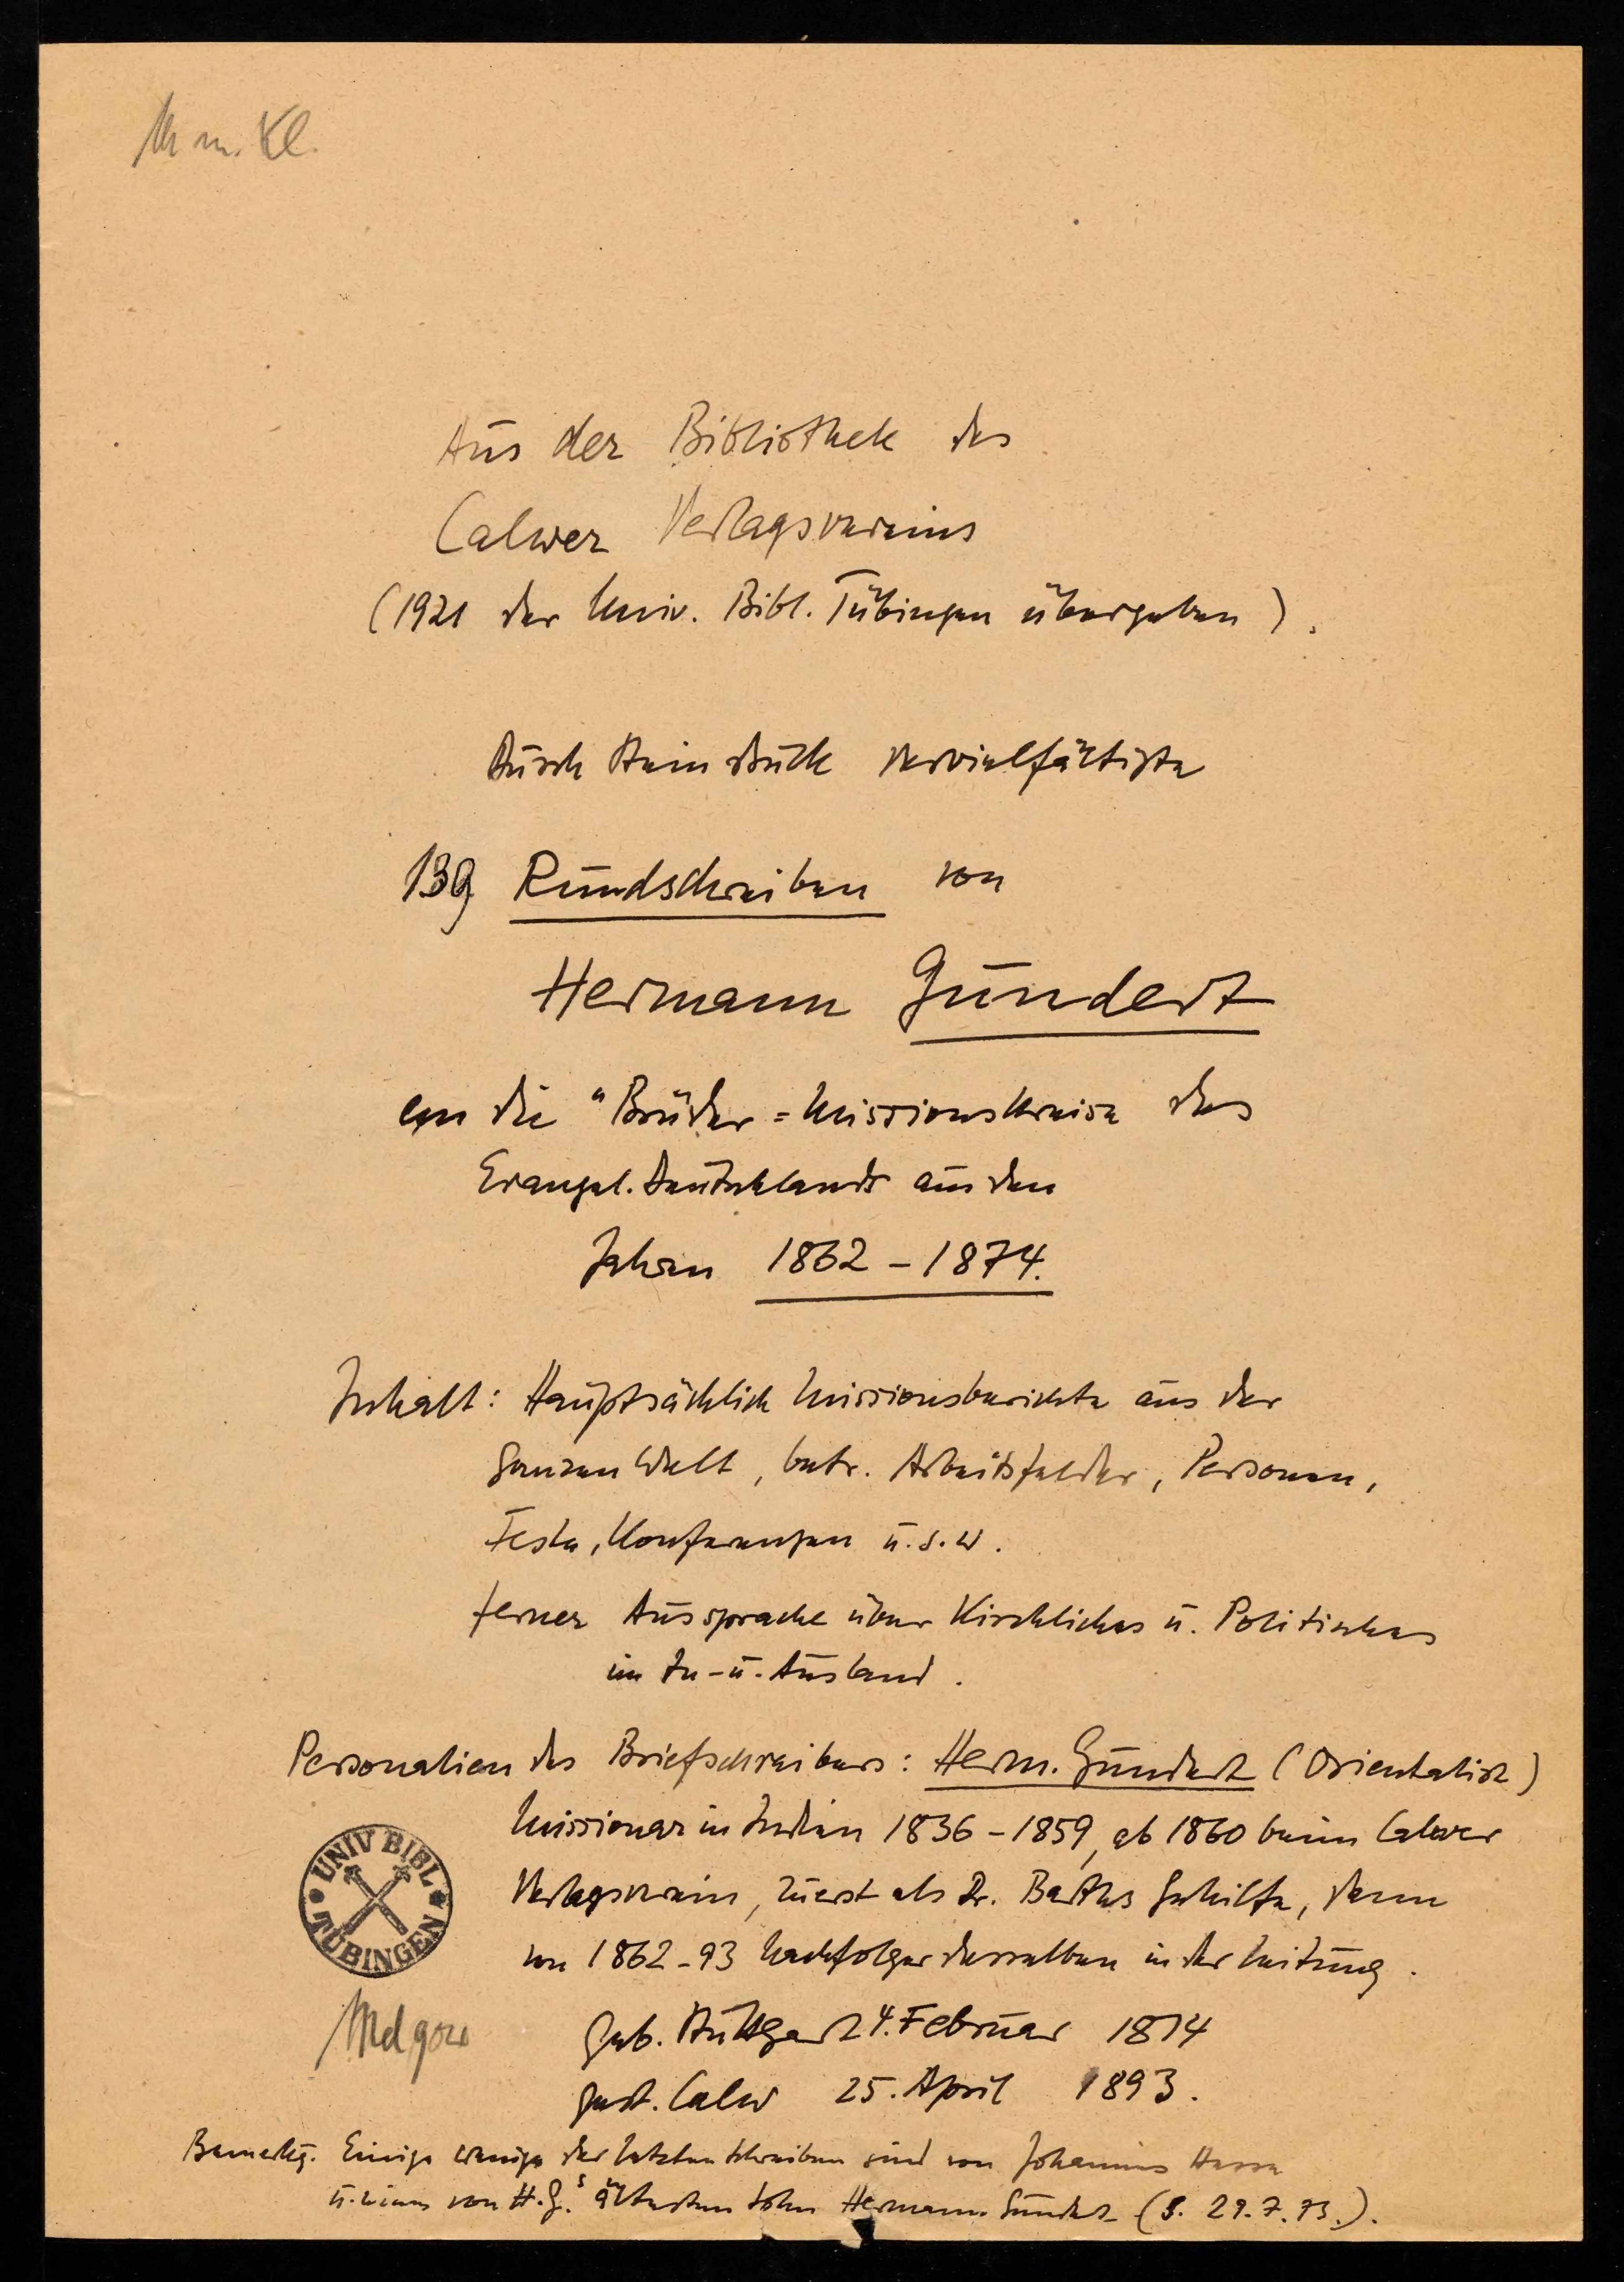 Aus der Bibliothek des
Calwer Verlagsvereins
(1921 der Univ. Bibl. Tübingen übergeben).
Durch Steindruck vervielfältigte
139 Rundschreiben von
Hermann Gundert
an die "Brüder = Missionskreise des
Evangel. Deutschlands aus den
Jahren 1862 - 1874.
Inhalt: Hauptsächlich Missionsberichte aus der
ganzen Welt, betr. Arbeitsfelder, Personen,
Feste, Konferenzen u.s.w.
ferner Aussprache über Kirchliches u. Politisches
im In- u. Ausland.
Personalien des Briefschreibers: Herm. Gundert (Orientalist)
Missionar in Indien 1836 - 1859, ab 1860 beim Calwer
Verlagsverein, zuerst als Dr. Barths Gehilfe, dann
von 1862-93 Nachfolger desselben in der Leitung.
UNIV BIBL
TÜBINGEN
geb. Stuttgart 4. Februar 1814
gest. Calw 25. April 1893.
Bemerkg. Einige wenige der letzten Schreiben sind von Johannes Hesse
u. eines von H. G.s ältesten Sohn Hermann Gundert (S. 29.7.73.).